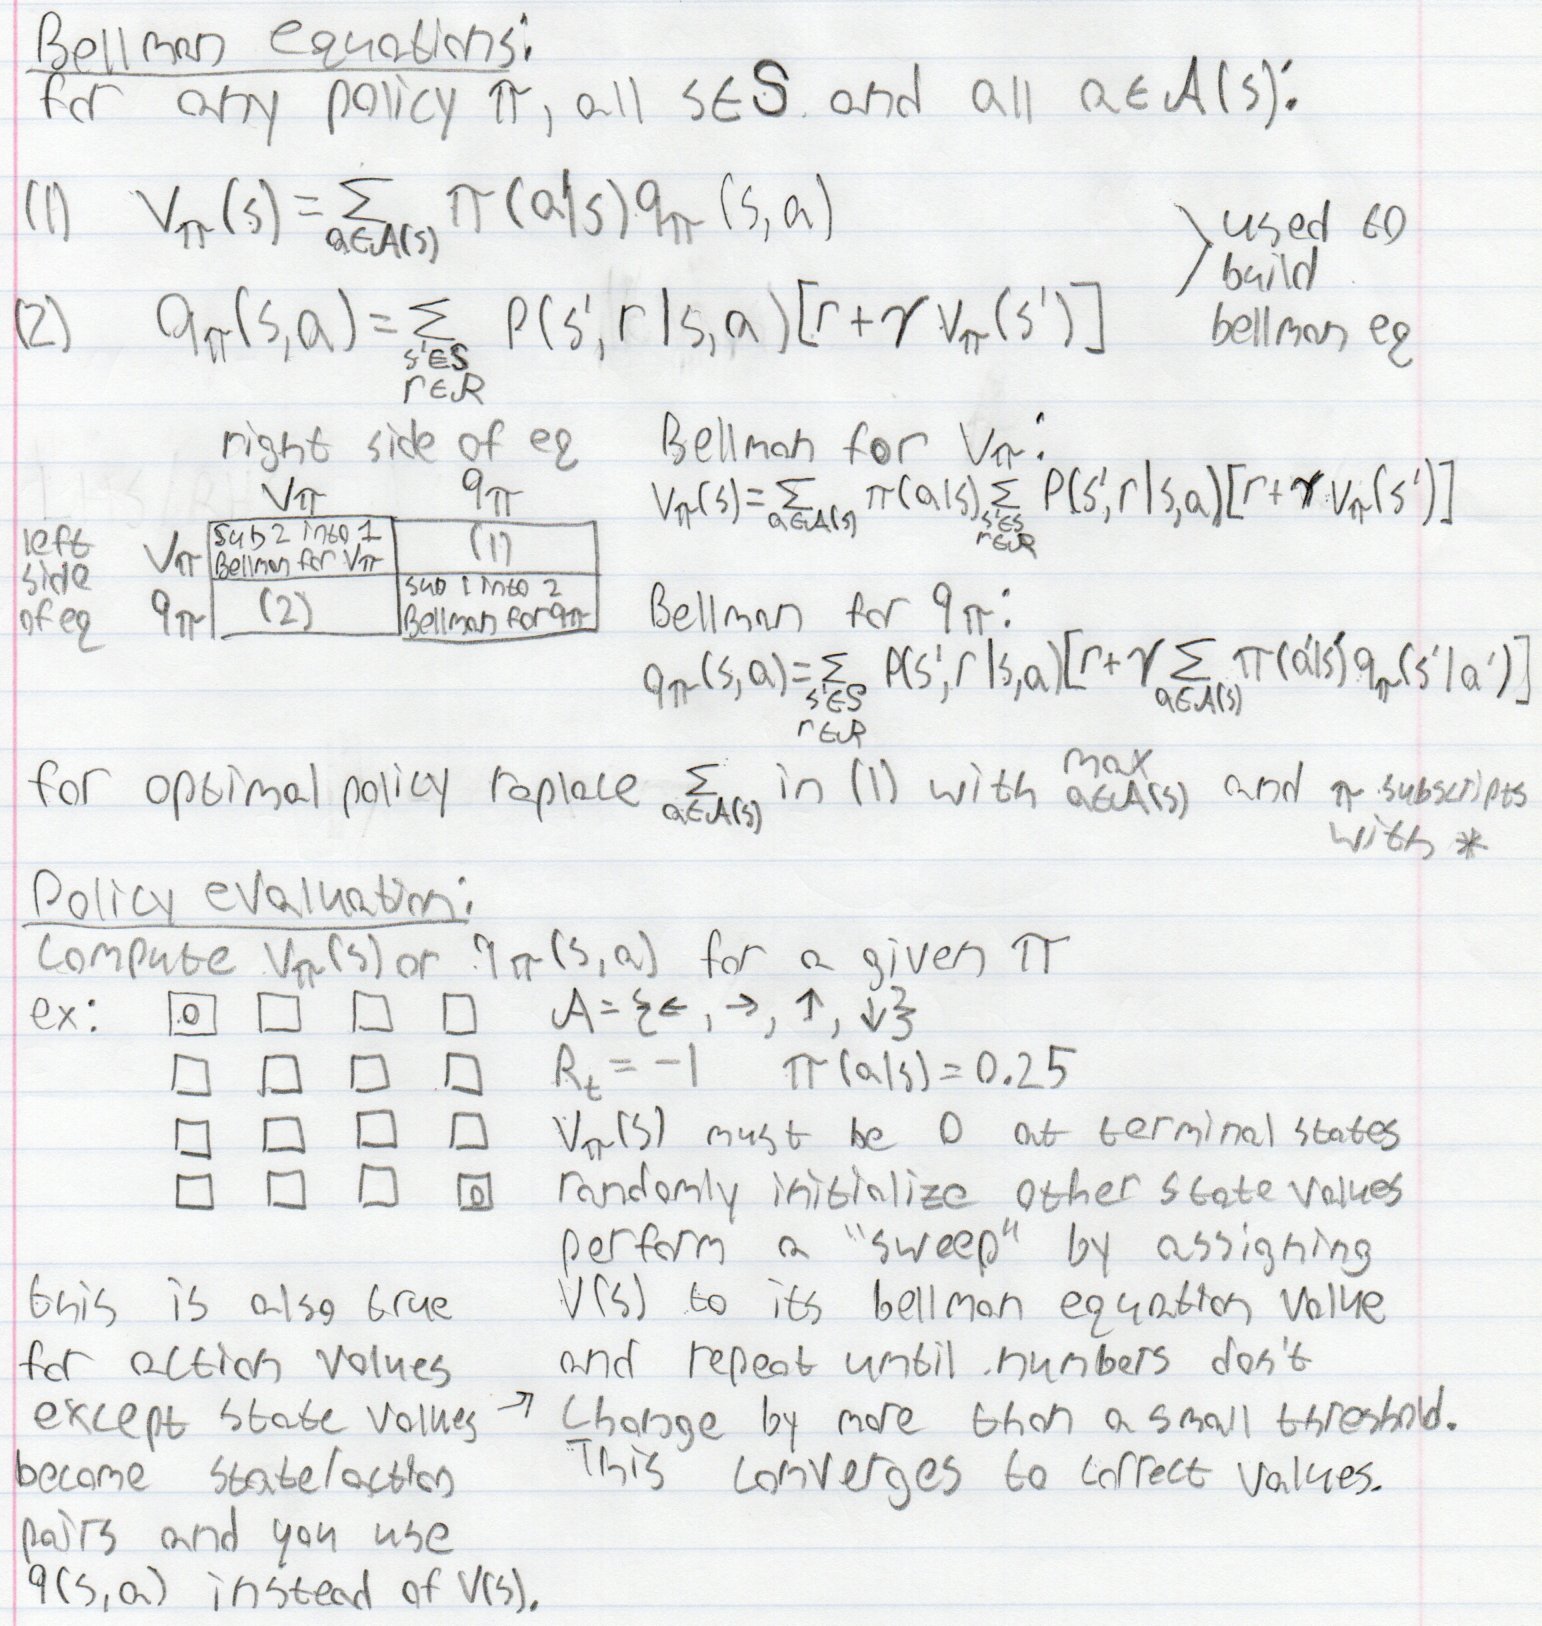 Bellman equations:
for any policy π, all s∈S and all a∈A(s):
(1) Vπ(s) = Σ π(a|s) qπ(s,a)
a∈A(s)
(2) qπ(s,a) = Σ P(s',r|s,a)[r+γVπ(s')]
s'∈S
r∈R
used to
build
bellman eq
right side of eq
Vπ qπ
left
side
of eq
Vπ
sub 2 into 1
Bellman for Vπ
(1)
qπ
(2)
sub 1 into 2
Bellman for qπ
Bellman for Vπ:
Vπ(s) = Σ π(a|s) Σ P(s',r|s,a)[r+γVπ(s')]
a∈A(s) s'∈S
r∈R
Bellman for qπ:
qπ(s,a) = Σ P(s',r|s,a)[r+γ Σ π(a'|s') qπ(s'|a')]
s'∈S a∈A(s)
r∈R
for optimal policy replace Σ in (1) with max and π subscripts
a∈A(s) a∈A(s) with *
Policy evaluation:
compute Vπ(s) or qπ(s,a) for a given π
ex: 0
0
A={←, →, ↑, ↓}
Rt = -1 π(a|s) = 0.25
Vπ(s) must be 0 at terminal states
randomly initialize other state values
perform a "sweep" by assigning
V(s) to its bellman equation value
and repeat until numbers don't
change by more than a small threshold.
This converges to correct values.
this is also true
for action values
except state values →
become state/action
pairs and you use
q(s,a) instead of V(s).